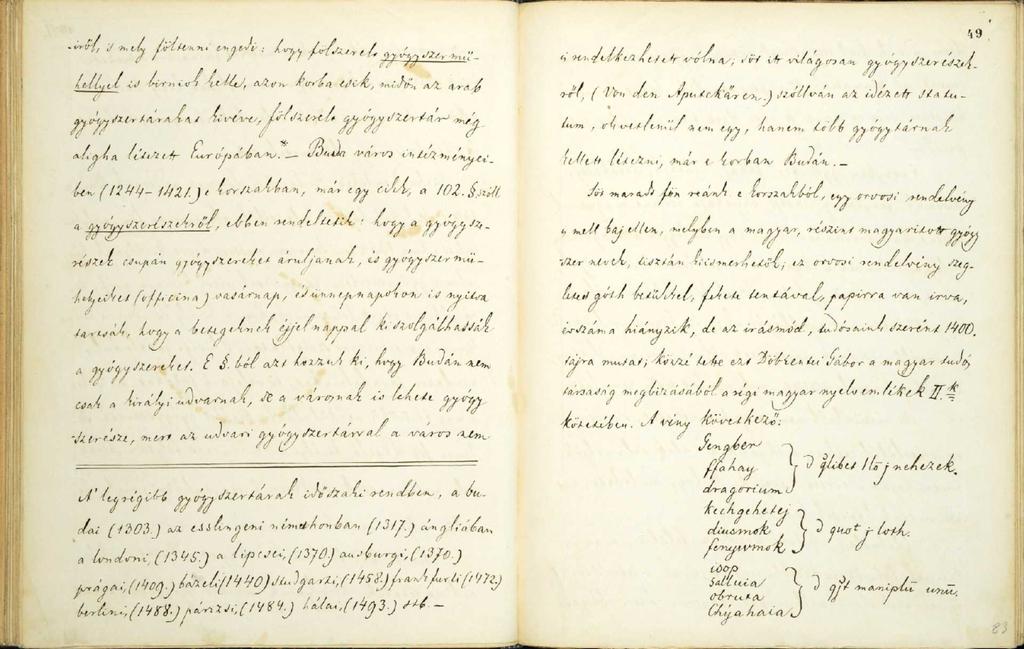 -iről, s mely föltenni engedi: hogy fölszerelt gyógyszer mü-
hellyel is birniok kelle, azon korba esik, midőn az arab
gyógyszertárakat kivéve, fölszerelt gyógyszertár még
aligha létezett Európában.* – Buda város intézményei-
ben (1244–1421.) e korszakban, már egy cikk, a 102. §. szóll
a gyógyszerészekről, ebben rendeltetik: hogy a gyógysze-
részek csupán gyógyszereket áruljanak, és gyógyszer mü-
helyeiket (officina) vasárnap, és ünnepnapokon is nyitva
tartsák, hogy a betegeknek éjjel nappal kiszolgálhassák
a gyógyszereket. E §.ból azt hozzuk ki, hogy Budán nem
csak a királyi udvarnak, de a városnak is lehete gyógy
szerésze, mert az udvari gyógyszertárral a város nem
A' legrégibb gyógyszertárak időszaki rendben, a bu-
dai (1303.) az esslingeni némethonban (1317.) ángliában
a londoni, (1345.) a lipcsei, (1370) ausburgi, (1370.)
prágai, (1409.) bázeli (1440) studgarti, (1458.) frankfurti (1472.)
berlini, (1488.) párizsi, (1484.) hálai, (1493.) stb. –
49
is rendelkezhetett vólna; sőt itt világosan gyógyszerészek-
ről, (Von den Aputekären.) szóllván az idézett statu-
tum, okvetlenül nem egy, hanem több gyógytárnak
kellett létezni, már e korban Budán. –
Sőt maradt fön reánk e korszakból, egy orvosi rendelvény
a mell baj ellen, melyben a magyar, részint magyarított gyógy
szer nevek, tisztán kiismerhetők; ez orvosi rendelvény szeg-
letes góth betükkel, fekete tentával, papirra van irva,
évszáma hiányzik, de az irásmód, tudósaink szerént 1400.
tájra mutat; közzé tette ezt Döbrentei Gábor a magyar tudós
társaság megbizásából a régi magyar nyelvemlékek II.k
kötetében. A vény következő:
Gengber
ffahay
dragorium
kechgehetej
diusmok
fenyiwmok
isop
Saluia
obruta
Chyahaia
} d qlibet 1to j nehezek.
} d quot j loth.
} d qlt maniplu unu.
83